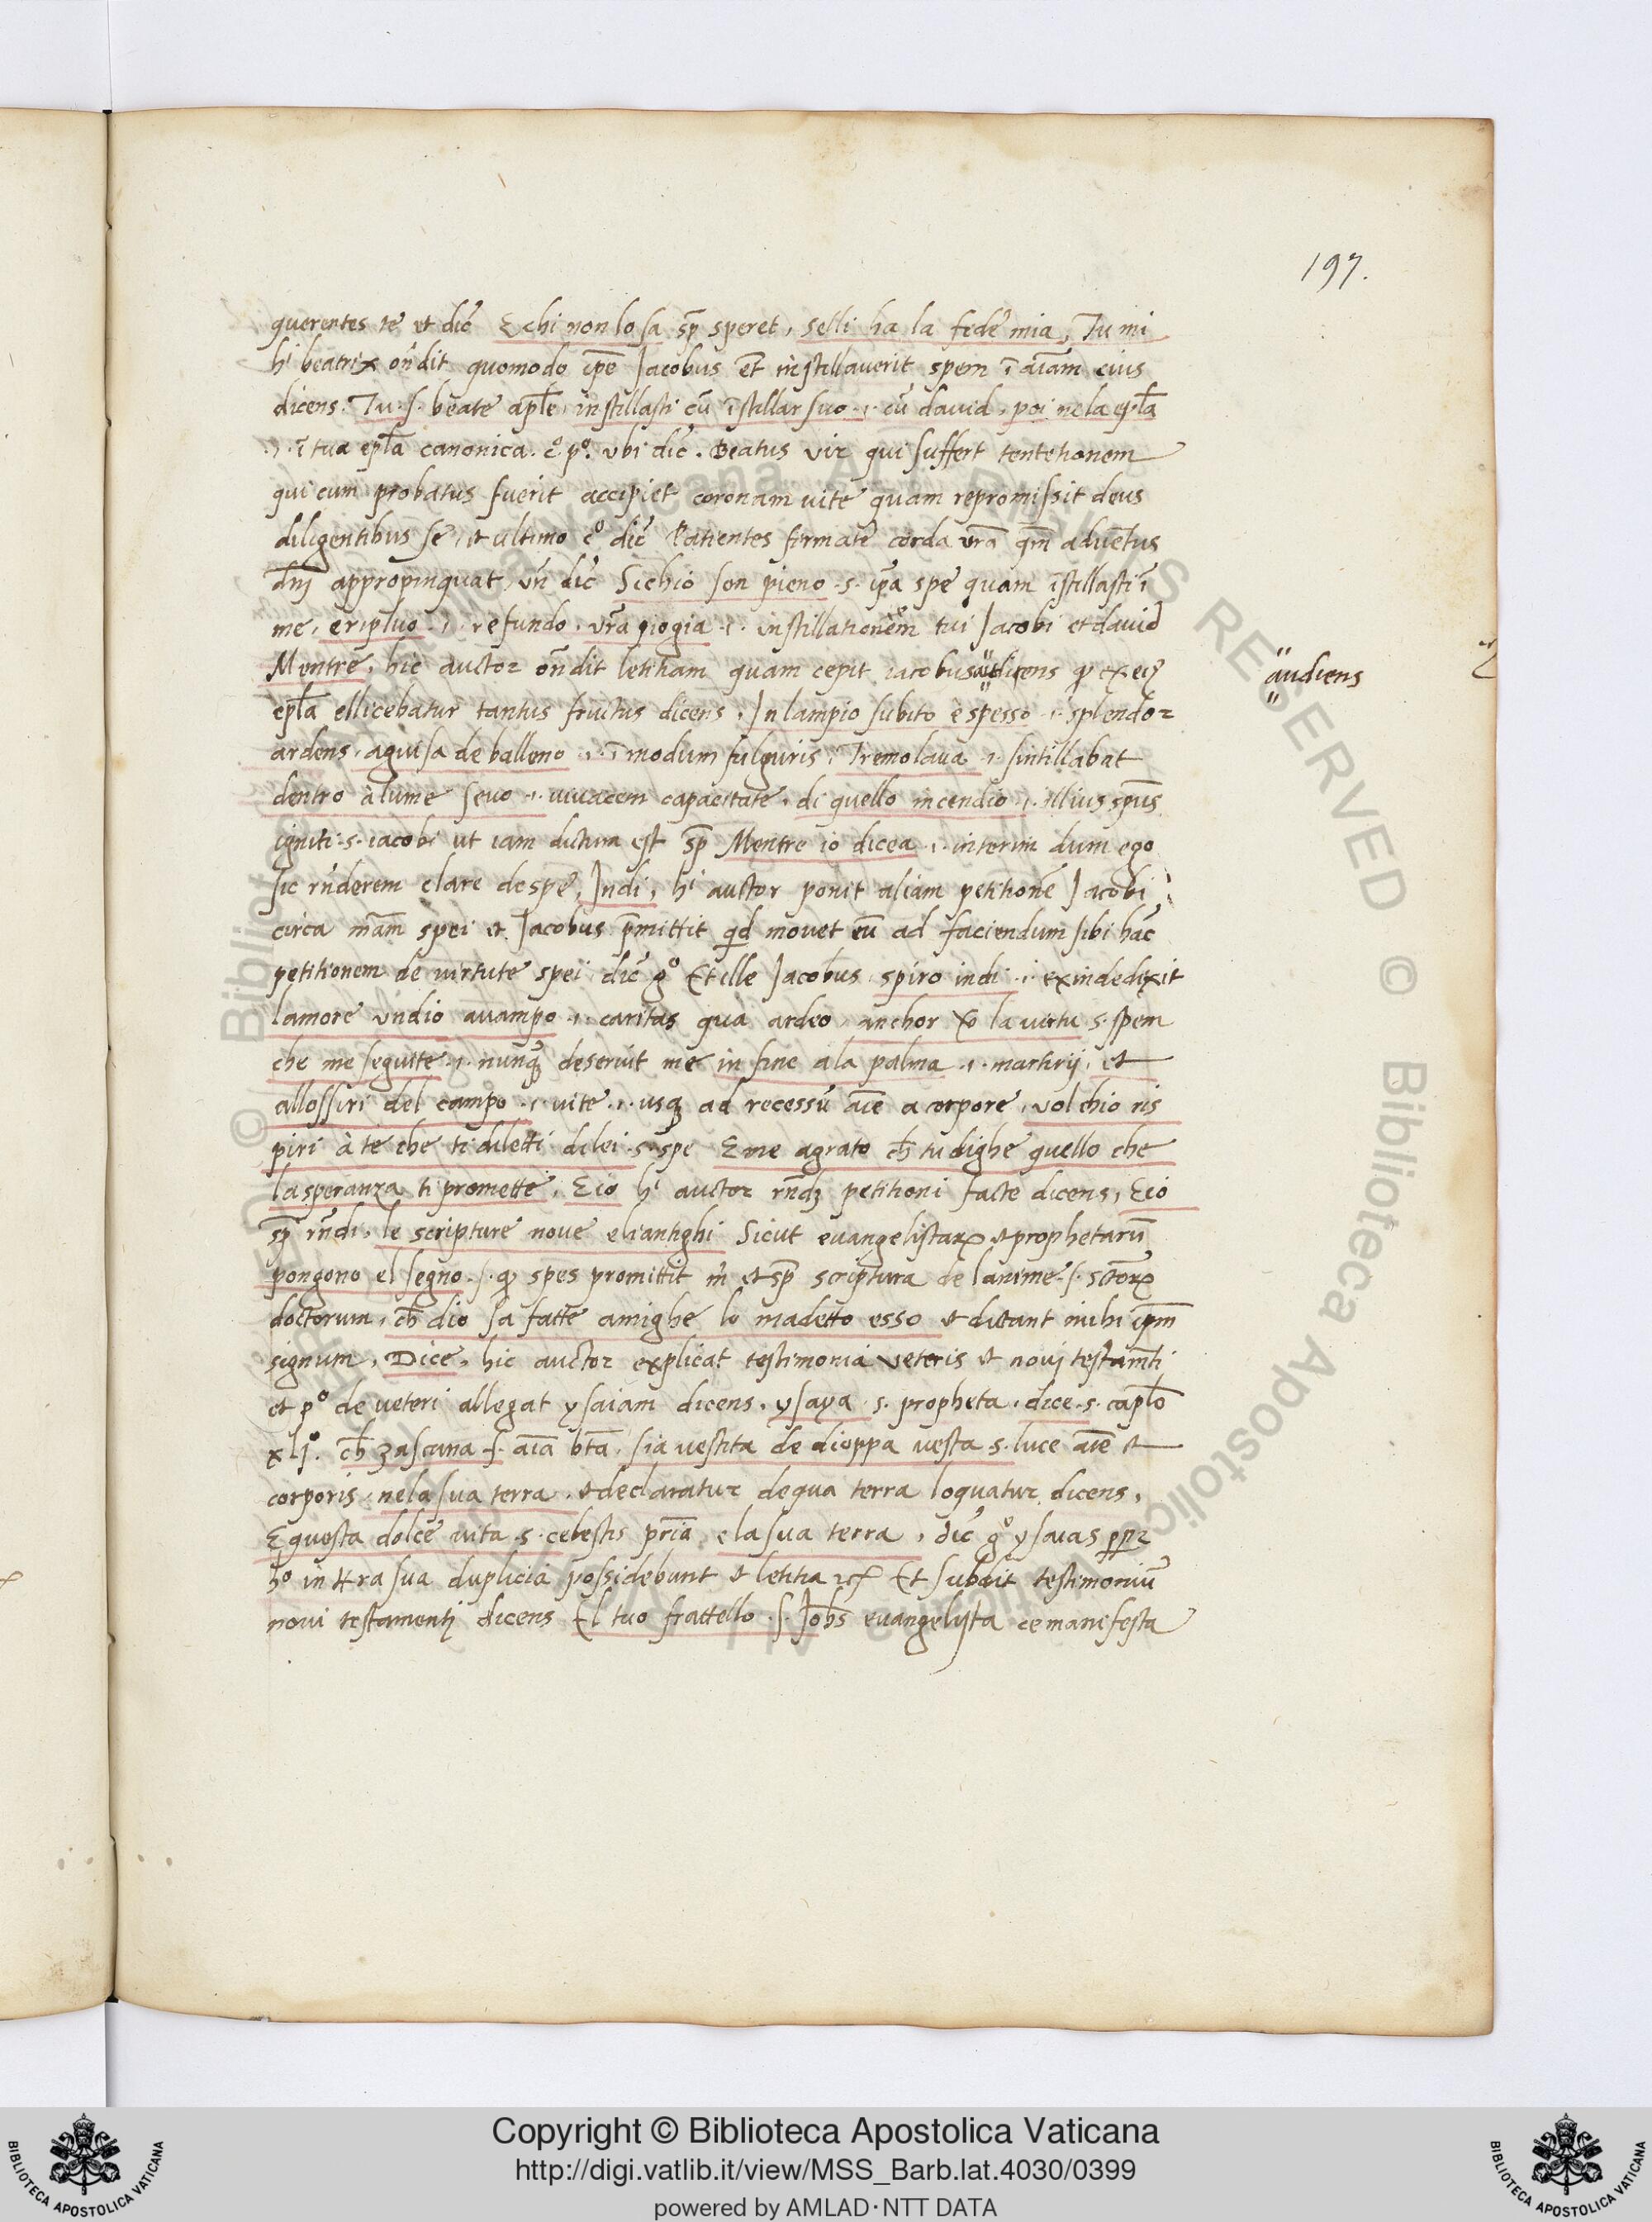 197.
querentes te et dic̃ E chi non lo sa sp̃ speret, selli ha la fede mia, Tu mi
hi beatrix on̄dit quomodo ip̄e Jacobus et̄ instillaverit spem ī aīam eius
dicens. Tu .s. beate apl̄e, instillasti cū īstillar suo .i. cū david, poi nela epl̄a
.i. ī tua epl̄a canonica. c̊. p̊. ubi dic̃. Beatus vir qui suffert tentetionem
qui cum probatus fuerit accipiet coronam vite quam repromissit deus
diligentibus se, et ultimo c̊ dic̃ Patientes firmate corda vr̄a qm̄ advētus
dnī appropinquat, vn̄ dic̃ Sichio son pieno .s. ip̄a spe quam īstillasti ī
me, eripluo .i. refundo, vr̄a piogia .i. instillationem tui Jacobi et david
Mentre, hic auctor on̄dit letitiam quam cepit iacobus audiens qꝫ ex eiꝰ
audiens
epl̄a ellicebatur tantus fructus dicens, In lampio subito e spesso .i. splendor
ardens, aguisa de balleno .i. ī modum fulguris, Tremolava .i. sintillabat
dentro à lume sevo .i. vivacem capacitate, di quello incendio .i. illius sp̄us
igniti .s. iacobi ut iam dictum est sp̃ Mentre io dicea .i. interim dum ego
sic rn̄derem clare de spe, Indi, hi auctor ponit aliam petitionē Jacobi
circa mām spei et Jacobus p̄mittit qd movet eū ad faciendum sibi hāc
petitionem de virtute spei dic̃ g̊ Et ille Jacobus spiro indi .i. exinde dixit
lamore vndio avampo .i. caritas qua ardeo anchor ꝟo la vertu s. spem
che me seguite .i. nunqꝫ deseruit me in fine ala palma .i. martirij, et
allossiri del campo .i. vite .i. usqꝫ ad recessū aīe a corpore, vol chio ris
piri à te che ti diletti dilei .s. spe E me agrato ch̄ tu dighe quello che
la speranza ti promette, Eio hi auctor rn̄dꝫ petitioni facte dicens, Eio
sp̃ rn̄di, le scripture nove eliantighi Sicut evangelistarꝫ et prophetarū
pongono el segno .s. qꝫ spes promittit m̄ et sp̃ scriptura de lanime .s. sctōrꝫ
doctorum, ch̄ dio sa fatte amighe lo madetto esso et dictant mihi ip̄m
signum, Dice, hic auctor explicat testimonia veteris et novi testam̄ti
et p̊ de veteri allegat ysaiam dicens, ysaya .s. propheta, dice .s. capl̄o
xlj̊. ch̄ zascuna .s. aīa bt̄a, sia vestita de dioppa vesta s. luce aīe et
corporis, nela sua terra, et declaratur de qua terra loquatur dicens,
E questa dolce vita .s. celestis pr̄ia, e la sua terra, dic̃ g̊ ysaias
in tr̄a sua duplicia possidebunt et letitia Et subdit testimoniū
novi testamentj dicens El tuo frattello .s. Joh̄s evangelista ce manifesta
Copyright © Biblioteca Apostolica Vaticana
http://digi.vatlib.it/view/MSS_Barb.lat.4030/0399
powered by AMLAD·NTT DATA